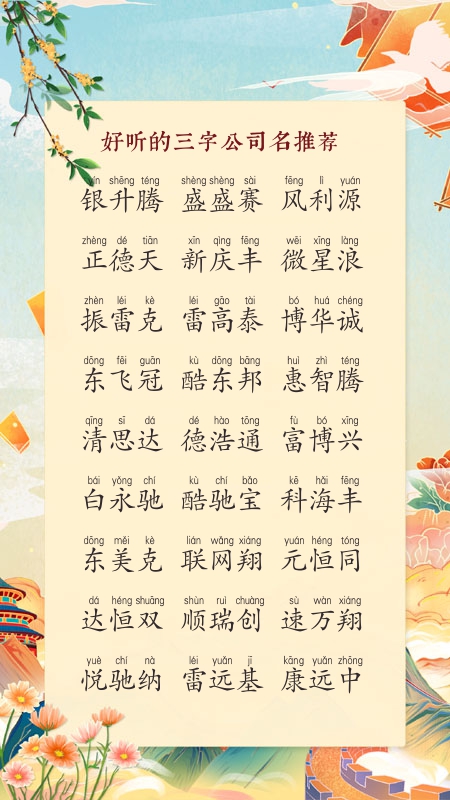 好听的三字公司名推荐
yín shēng téng shèng shèng sài fēng lì yuán
银升腾 盛盛赛 风利源
zhèng dé tiān xīn qìng fēng wēi xīng làng
正德天 新庆丰 微星浪
zhèn léi kè léi gāo tài bó huá chéng
振雷克 雷高泰 博华诚
dōng fēi guān kù dōng bāng huì zhì téng
东飞冠 酷东邦 惠智腾
qīng sī dá dé hào tōng fù bó xīng
清思达 德浩通 富博兴
bái yǒng chí kù chí bǎo kē hǎi fēng
白永驰 酷驰宝 科海丰
dōng měi kè lián wǎng xiáng yuán héng tóng
东美克 联网翔 元恒同
dá héng shuāng shùn ruì chuàng sù wàn xiáng
达恒双 顺瑞创 速万翔
yuè chí nà léi yuǎn jī kāng yuǎn zhōng
悦驰纳 雷远基 康远中